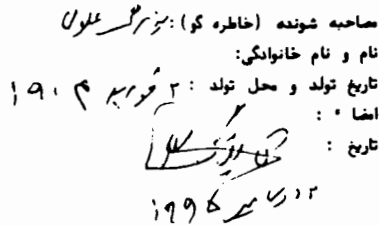 مصاحبه شونده (خاطره گو) : علوی
نام و نام خانوادگی:
تاریخ تولد و محل تولد : ۲ فوریه ۱۹۰۴
امضا * :
تاریخ :
۱۹۹۶